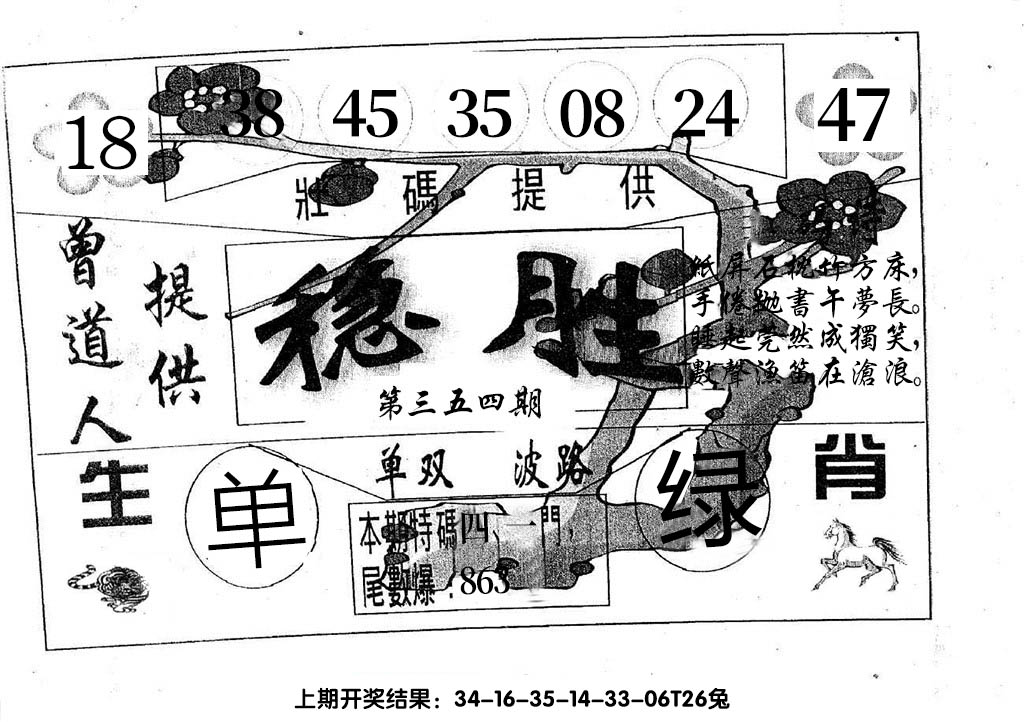 18 38 45 35 08 24 47
壯碼提供
曾道人
提供
稳胜
第三五四期
詩
紙屏石枕竹方床,
手倦抛書午夢長。
睡起莞然成獨笑,
數聲漁笛在滄浪。
单双 波路
生肖
单
绿
本期特碼四、一門,
尾數爆:863
上期开奖结果：34-16-35-14-33-06T26兔